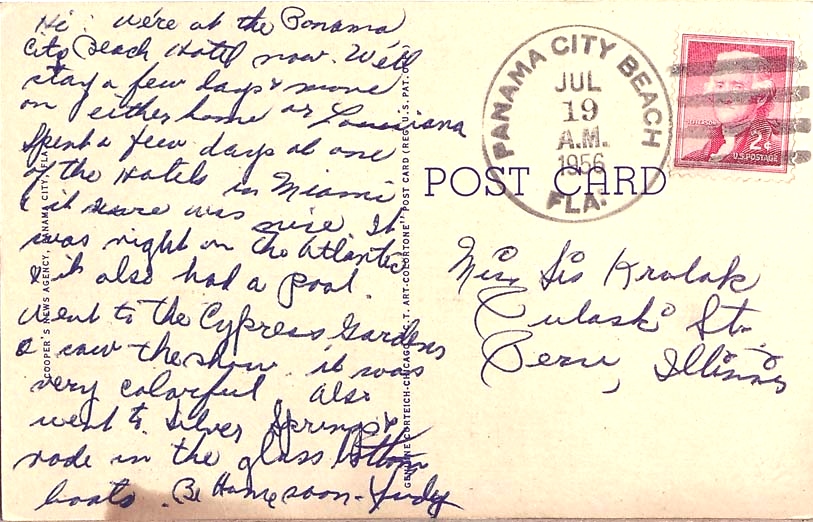 Hi: We're at the Panama
City Beach Hotel now. We'll
stay a few days & move
on either home or Louisiana
Spent a few days at one
of the Hotels in Miami
& it sure was nice. It
was right on the Atlantic
& it also had a pool.
Went to the Cypress Gardens
& saw the show. it was
very colorful. Also
went to Silver Springs &
rode in the glass bottom
boats. Be Home soon - Judy
COOPER'S NEWS AGENCY, PANAMA CITY, FLA.
GENUINE CURTEICH-CHICAGO "C.T. ART-COLORTONE" POST CARD (REG. U.S. PAT. O
POST CARD
PANAMA CITY BEACH
JUL
19
A.M.
1956
FLA.
JEFFERSON
2¢
U.S. POSTAGE
Miss Sis Krolak
Pulaski St.
Peru, Illinois